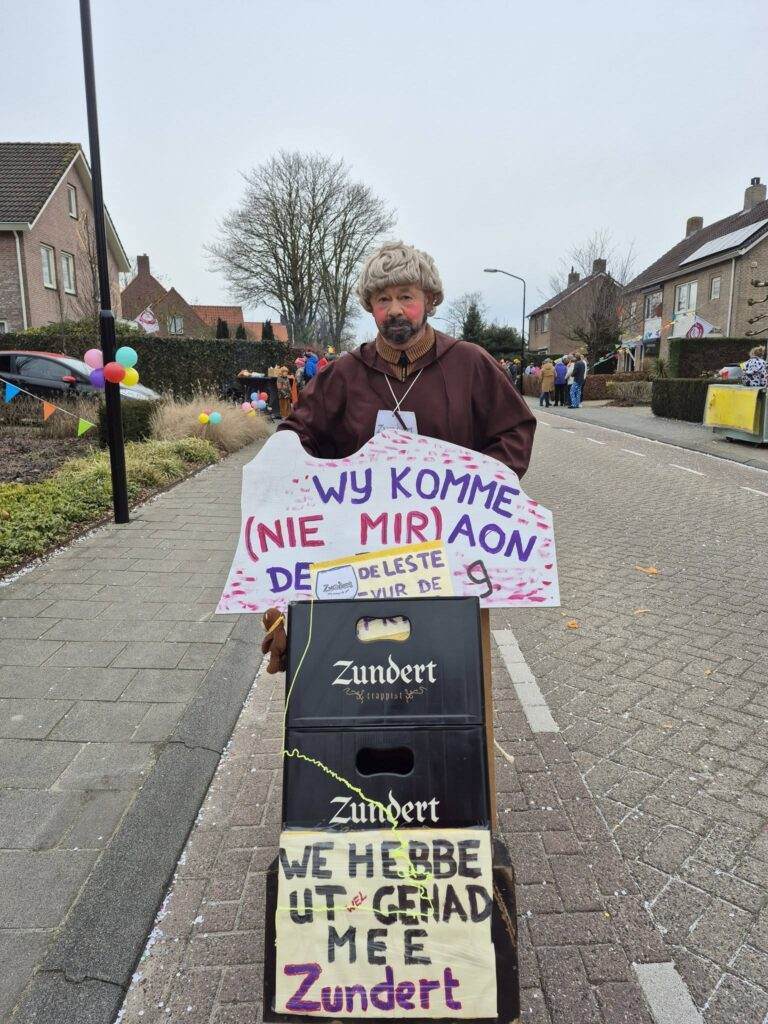 WY KOMME
(NIE MIR) AON
DE
g
DE LESTE
VUR DE
Zundert
Zundert
trappist
Zundert
WE HEBBE
UT WEL GEHAD
MEE
Zundert